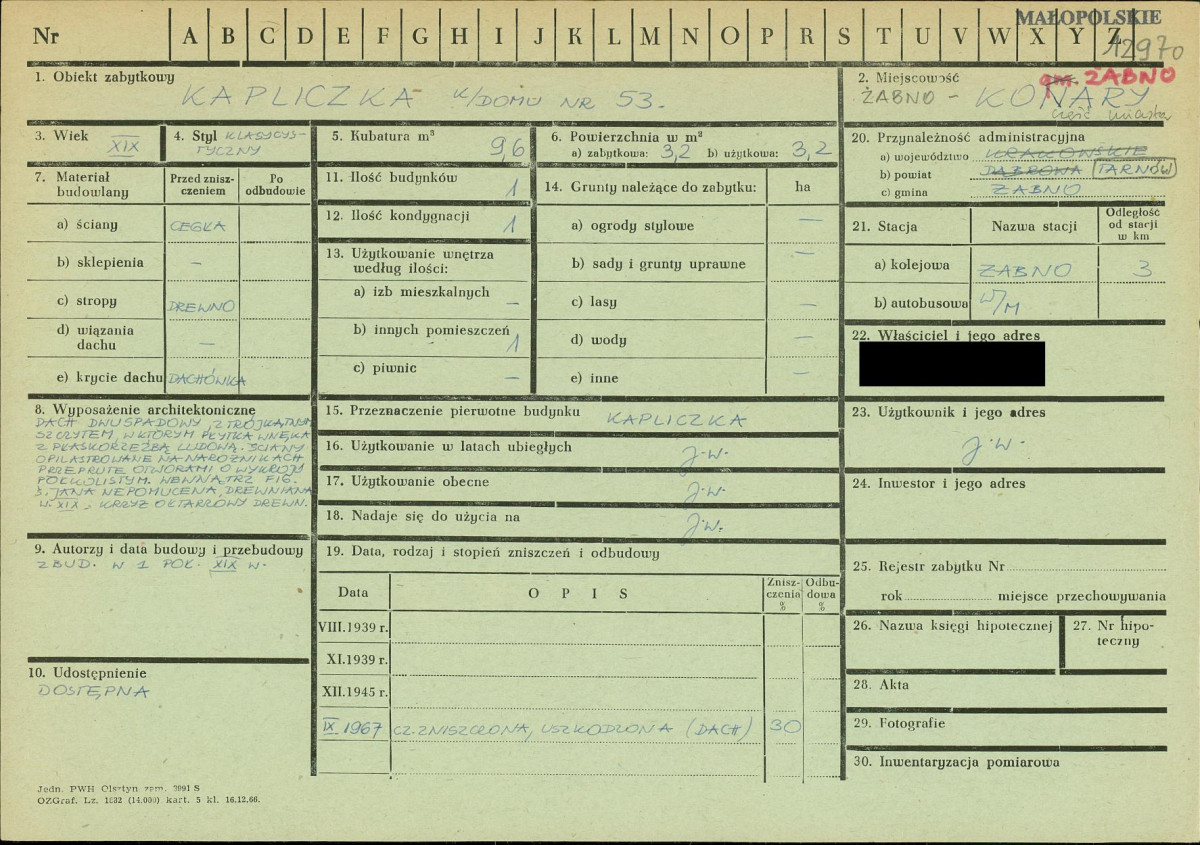 MAŁOPOLSKIE
Nr A B C D E F G H I J K L M N O P R S T U V W X Y Z
12970
1. Obiekt zabytkowy
KAPLICZKA K/DOMU NR 53.
2. Miejscowość
gm. ŻABNO
ŻABNO - KONARY
część miasta
3. Wiek
XIX
4. Styl KLASYCYS-
TYCZNY
5. Kubatura m³
9,6
6. Powierzchnia w m²
a) zabytkowa: 3,2 b) użytkowa: 3,2
7. Materiał budowlany
Przed znisz-
czeniem
Po
odbudowie
a) ściany CEGŁA
b) sklepienia –
c) stropy DREWNO
d) wiązania
dachu –
e) krycie dachu DACHÓWKA
8. Wyposażenie architektoniczne
DACH DWUSPADOWY, Z TRÓJKĄTNYM
SZCZYTEM, W KTÓRYM PŁYTKA WNĘKA
Z PŁASKORZEŹBĄ LUDOWĄ. ŚCIANY
OPILASTROWANE NA NAROŻNIKACH
PRZEPRUTE OTWORAMI O WYKROJU
PÓŁKOLISTYM. WEWNĄTRZ FIG.
Ś. JANA NEPOMUCENA, DREWNIANA
W. XIX, KRZYŻ OŁTARZOWY DREWN.
9. Autorzy i data budowy i przebudowy
ZBUD. W 1 POŁ. XIX W.
10. Udostępnienie
DOSTĘPNA
11. Ilość budynków
1
12. Ilość kondygnacji
1
13. Użytkowanie wnętrza
według ilości:
a) izb mieszkalnych
–
b) innych pomieszczeń
1
c) piwnic
–
14. Grunty należące do zabytku: ha
a) ogrody stylowe –
b) sady i grunty uprawne –
c) lasy –
d) wody –
e) inne –
15. Przeznaczenie pierwotne budynku KAPLICZKA
16. Użytkowanie w latach ubiegłych j.w.
17. Użytkowanie obecne j.w.
18. Nadaje się do użycia na j.w.
19. Data, rodzaj i stopień zniszczeń i odbudowy
Data
OPIS
Znisz-
czenia
%
Odbu-
dowa
%
VIII.1939 r.
XI.1939 r.
XII.1945 r.
IX 1967 CZ. ZNISZCZONA, USZKODZONA (DACH) 30
20. Przynależność administracyjna
a) województwo KRAKOWSKIE
b) powiat DĄBROWA TARNÓW
c) gmina ŻABNO
21. Stacja
Nazwa stacji
Odległość
od stacji
w km
a) kolejowa ŻABNO 3
b) autobusowa W/M
22. Właściciel i jego adres
23. Użytkownik i jego adres
j.w.
24. Inwestor i jego adres
25. Rejestr zabytku Nr
rok miejsce przechowywania
26. Nazwa księgi hipotecznej
27. Nr hipo-
teczny
28. Akta
29. Fotografie
30. Inwentaryzacja pomiarowa
Jedn. PWH Olsztyn zam. 3991 S
OZGraf. Lz. 1032 (14.000) kart. 5 kl. 16.12.66.